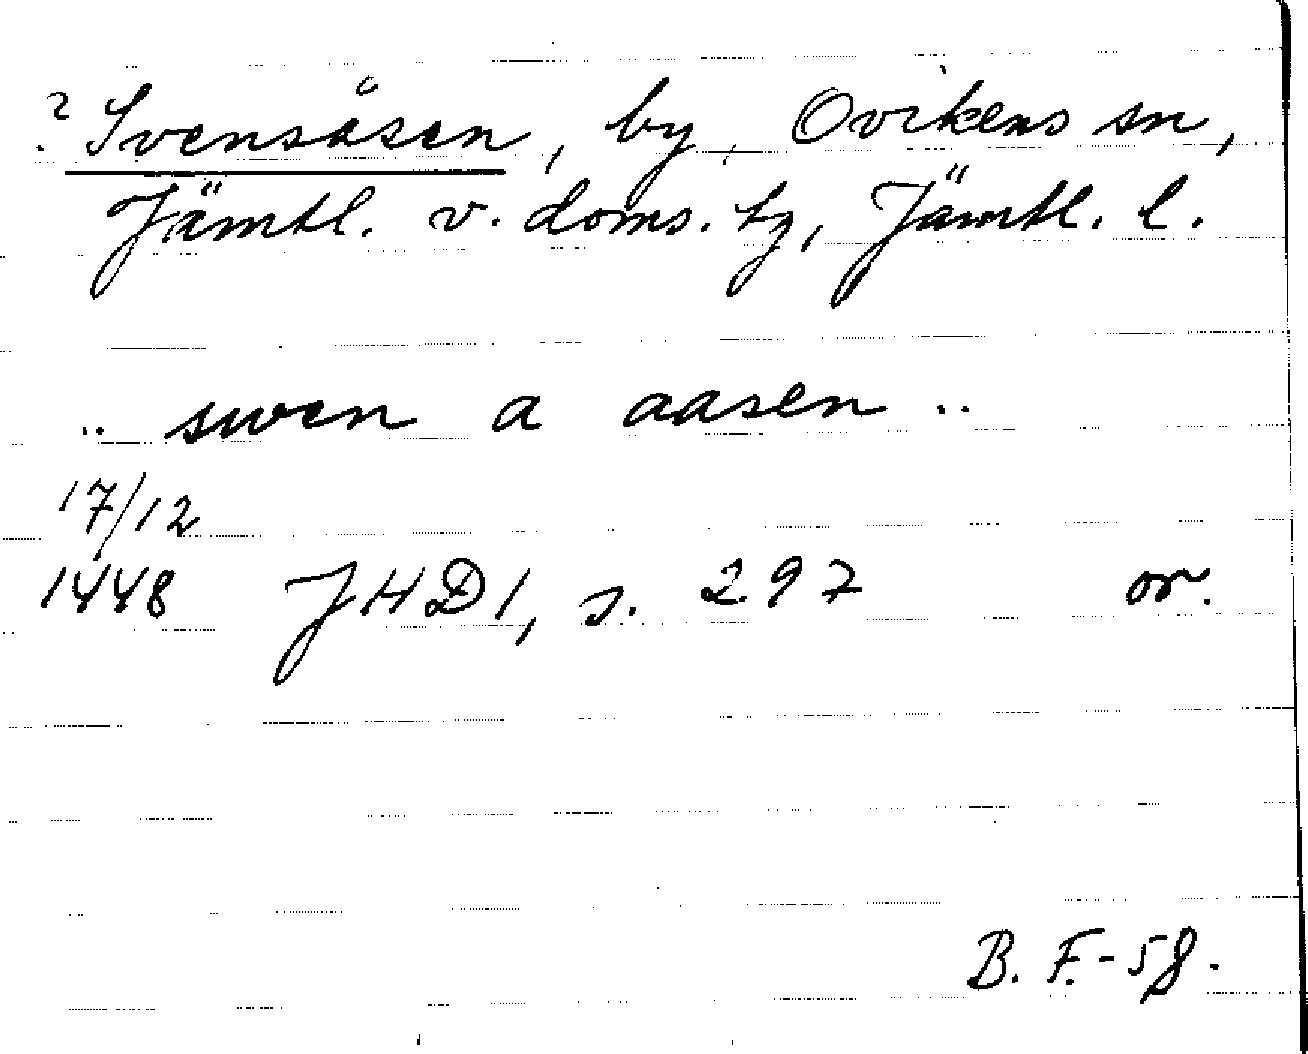 ? Svensåsen, by, Ovikens sn,
Jämtl. v. doms. tg, Jämtl. l.
.. swen a aasen ..
17/12
1448 JHD 1, s. 297 or.
B. F. - 58.